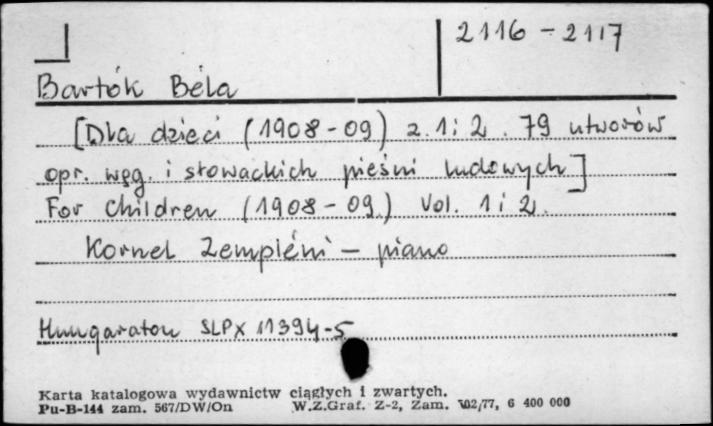 2116 - 2117
Bartók Béla
[Dla dzieci (1908-09) z. 1 i 2. 79 utworów
opr. węg. i słowackich pieśni ludowych]
For Children (1908-09) Vol. 1 i 2.
Kornel Zempléni - piano
Hungaroton SLPX 11394-5
Karta katalogowa wydawnictw ciągłych i zwartych.
Pu-B-144 zam. 567/DW/On W.Z.Graf. Z-2, Zam. 102/77, 6 400 000